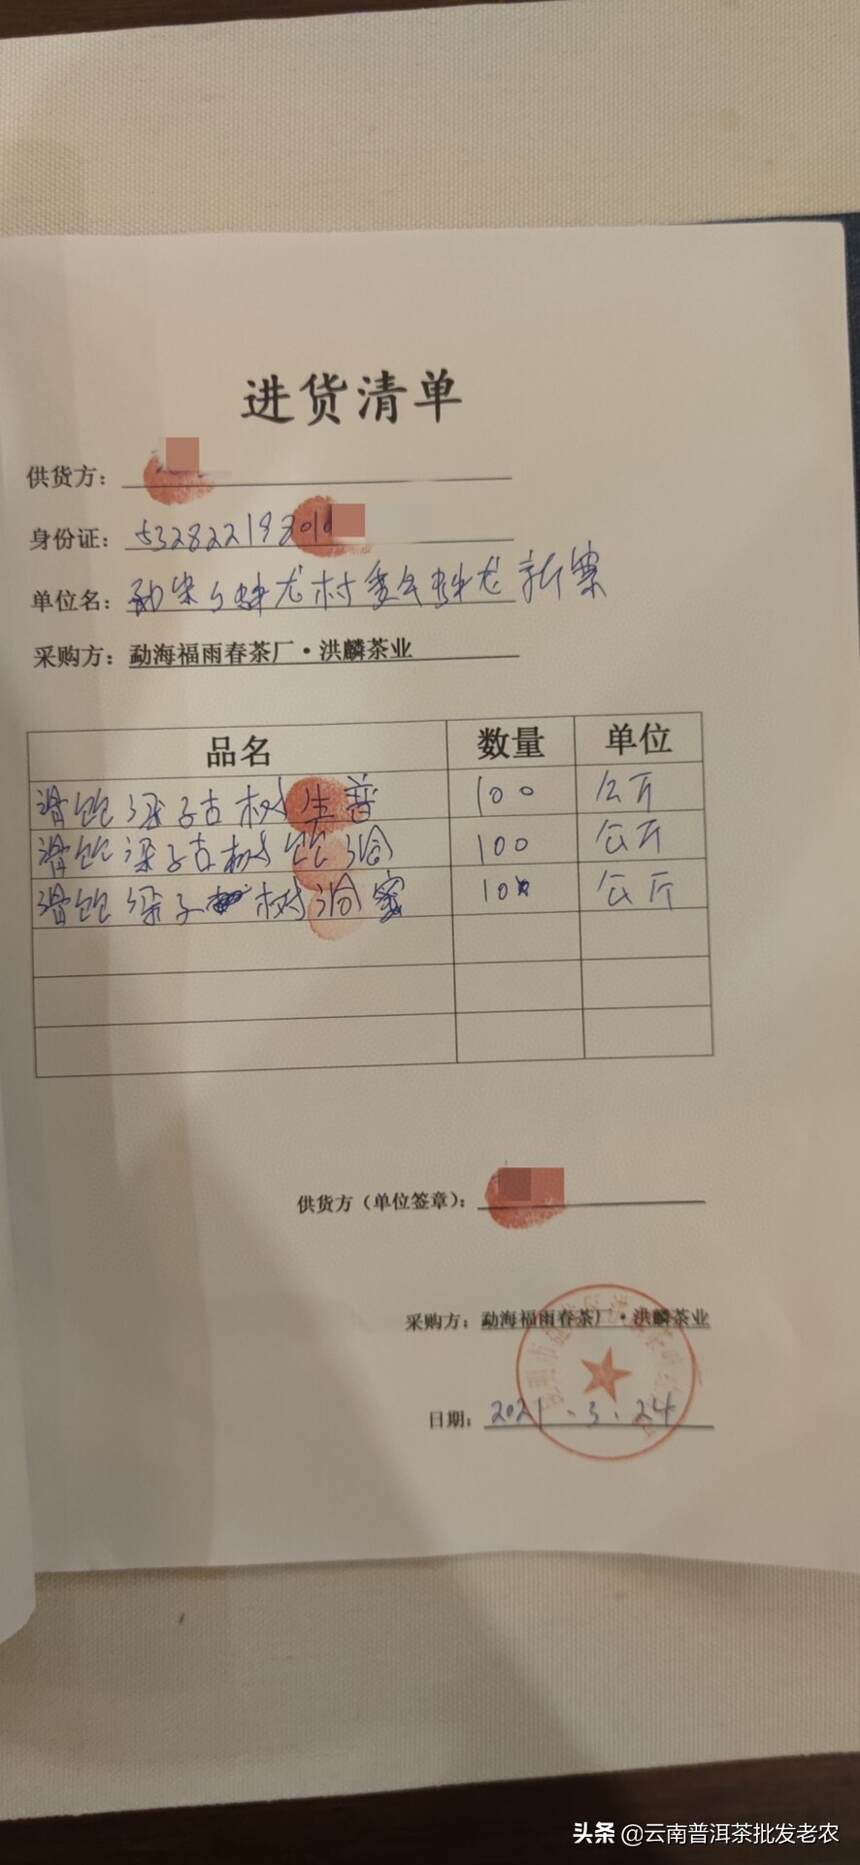 进货清单
供货方：
身份证：532822198010
单位名：勐宋乡蚌龙村委会蚌龙新寨
采购方：勐海福雨春茶厂·洪麟茶业
品名 数量 单位
滑竹梁子古树生普 100 公斤
滑竹梁子古树 100 公斤
滑竹梁子树 100 公斤
供货方（单位签章）：
采购方：勐海福雨春茶厂·洪麟茶业
日期：2021.3.24
头条 @云南普洱茶批发老农